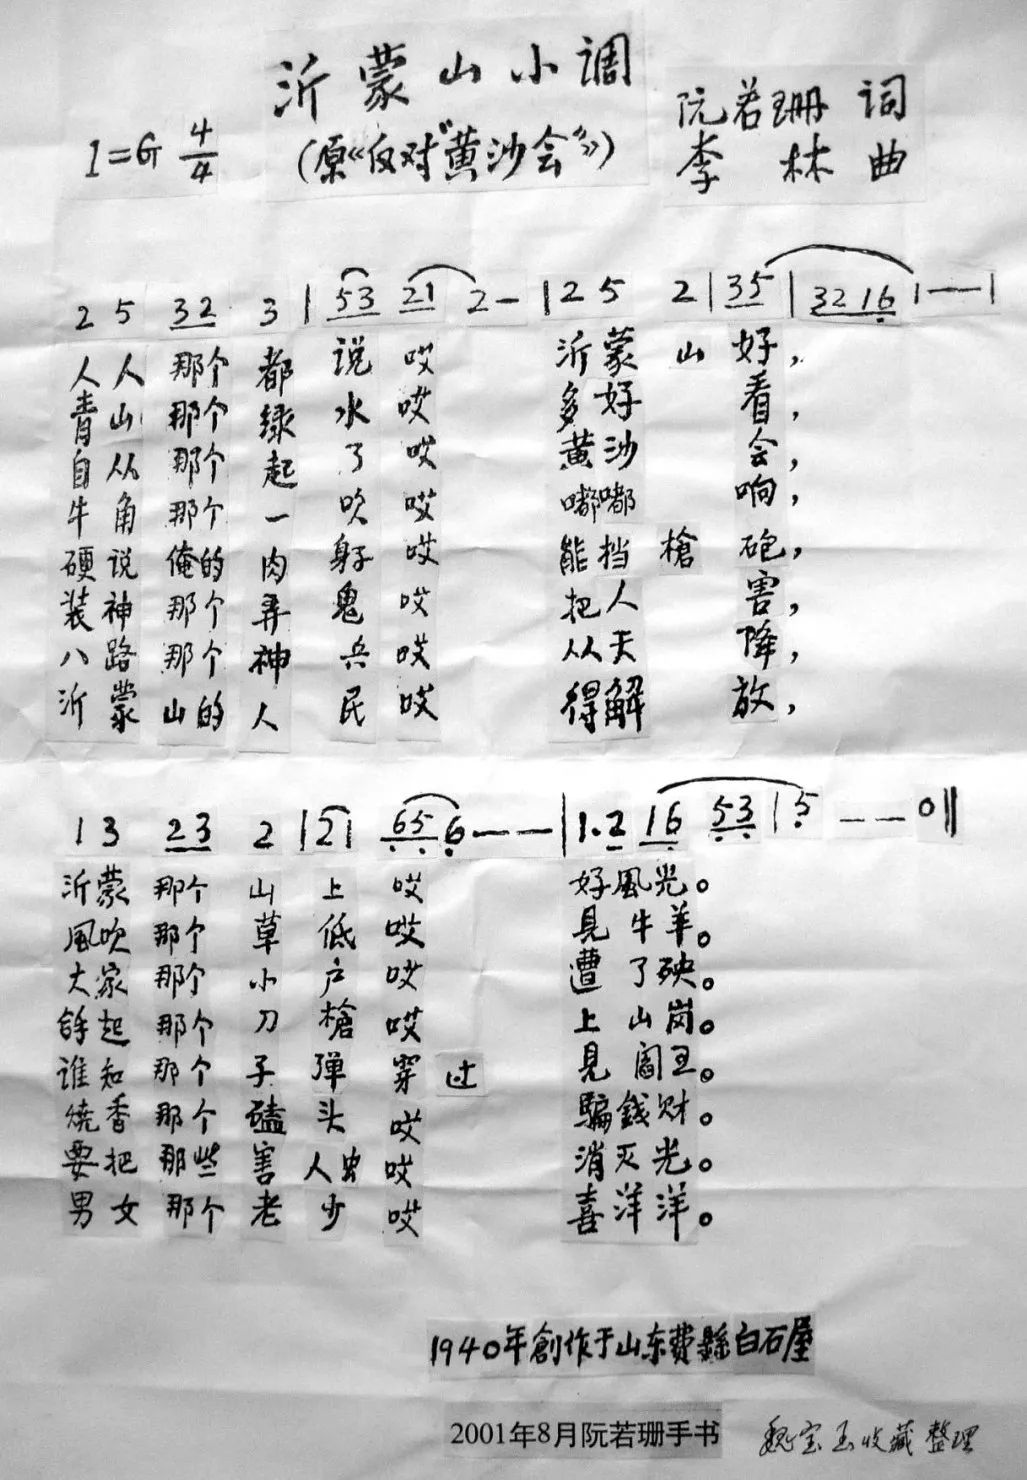 沂蒙山小调
(原《反对"黄沙会"》)
阮若珊 词
李 林 曲
1=G 4/4
2 5 32 3 | 53 21 2- | 2 5 2 | 35 | 32 16 1—— |
人人那个都说哎 沂蒙山好，
青山那个绿水哎 多好看，
自从那个起了哎 黄沙会，
牛角那个一吹哎 嘟嘟响，
硬说俺的肉身子哎 能挡槍砲，
装神那个弄鬼哎 把人害，
八路那个神兵哎 从天降，
沂蒙山的人民哎 得解放，
1 3 23 2 | 21 65 6——— | 1.2 16 53 | 5 —— 0 ‖
沂蒙那个山上哎 好風光。
風吹那个草低哎 見牛羊。
大家那个小户哎 遭了殃。
拿起那个刀槍哎 上山岗。
谁知那个子弹穿过 見閻王。
燒香那个磕头哎 騙錢财。
要把那些害人虫哎 消灭光。
男女那个老少哎 喜洋洋。
1940年創作于山东费縣白石屋
2001年8月阮若珊手书
魏宝玉收藏整理